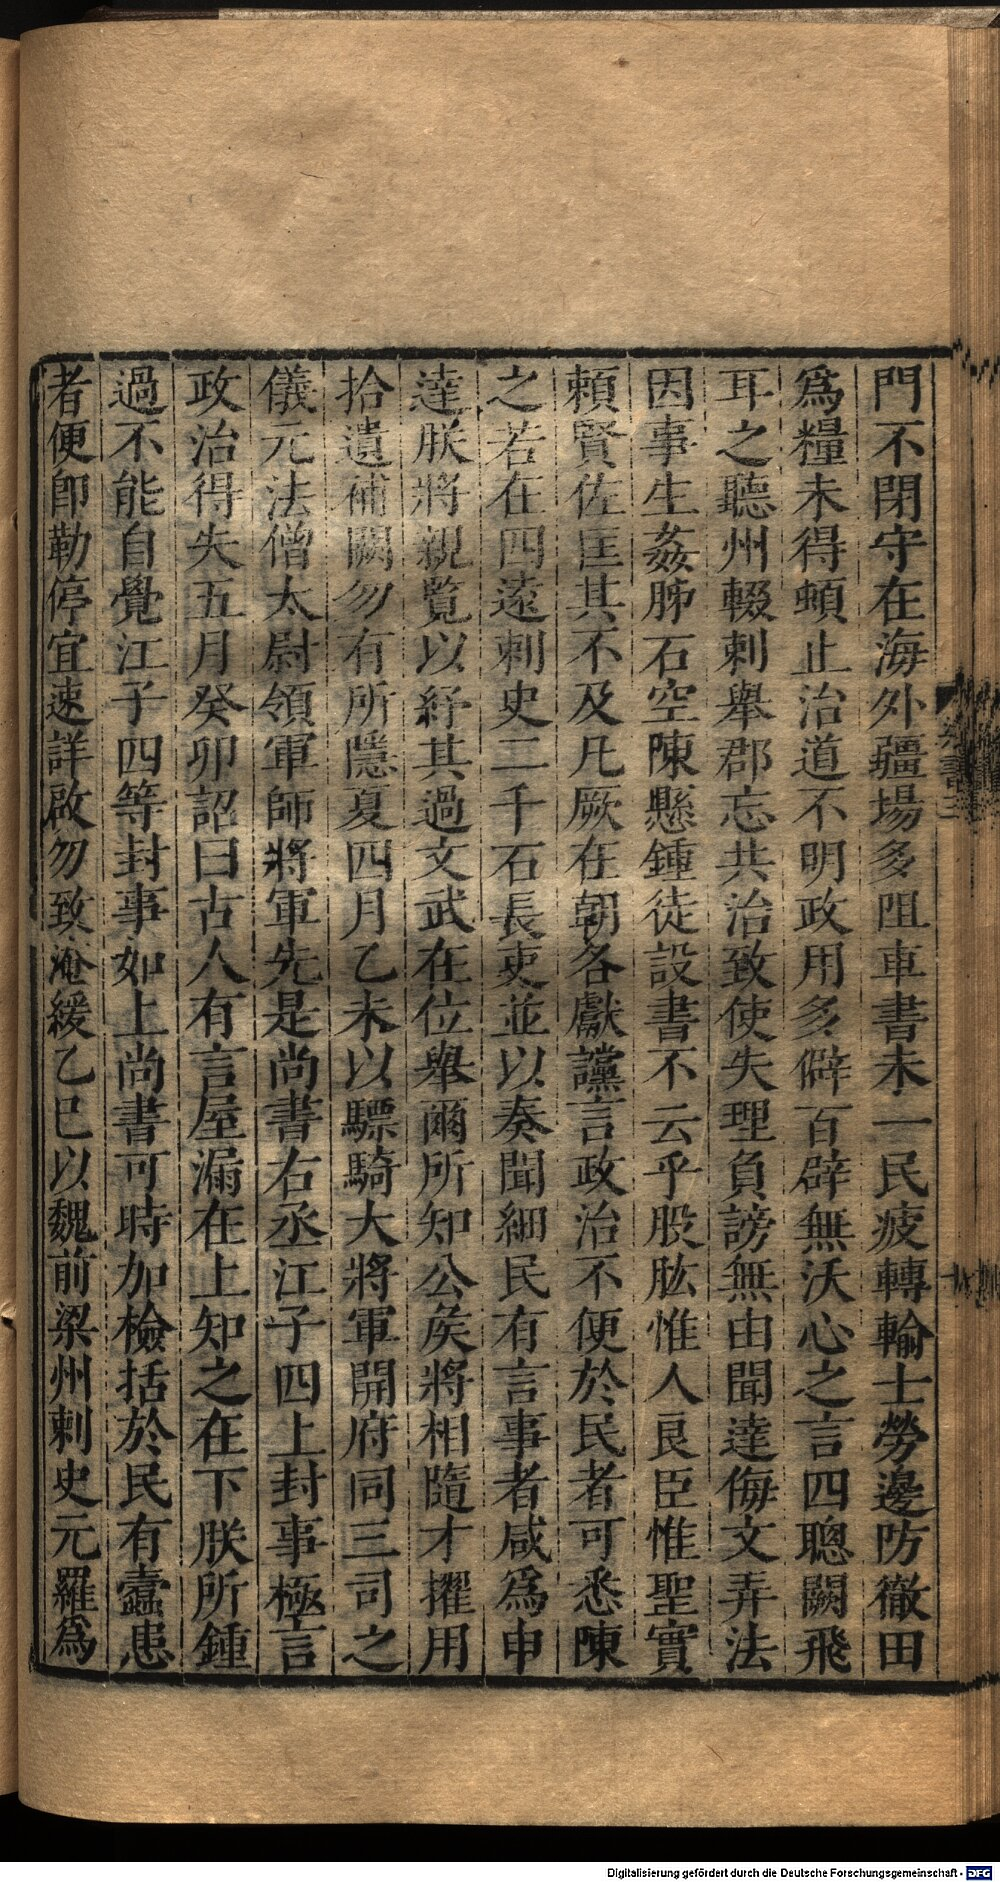 門不閉守在海外疆場多阻車書未一民疲轉輸士勞邊防徹田
爲糧未得頓止治道不明政用多僻百辟無沃心之言四聰闕飛
耳之聽州輟刺舉郡忘共治致使失理負謗無由聞達侮文弄法
因事生姦肺石空陳懸鍾徒設書不云乎股肱惟人良臣惟聖實
賴賢佐匡其不及凡厥在朝各獻讜言政治不便於民者可悉陳
之若在四遠刺史二千石長吏並以奏聞細民有言事者咸爲申
達朕將親覽以紓其過文武在位舉爾所知公矦將相隨才擢用
拾遺補闕勿有所隱夏四月乙未以驃騎大將軍開府同三司之
儀元法僧太尉領軍師將軍先是尚書右丞江子四上封事極言
政治得失五月癸卯詔曰古人有言屋漏在上知之在下朕所鍾
過不能自覺江子四等封事如上尚書可時加檢括於民有蠹患
者便即勒停宜速詳啟勿致淹緩乙巳以魏前梁州刺史元羅爲
Digitalisierung gefördert durch die Deutsche Forschungsgemeinschaft - DFG